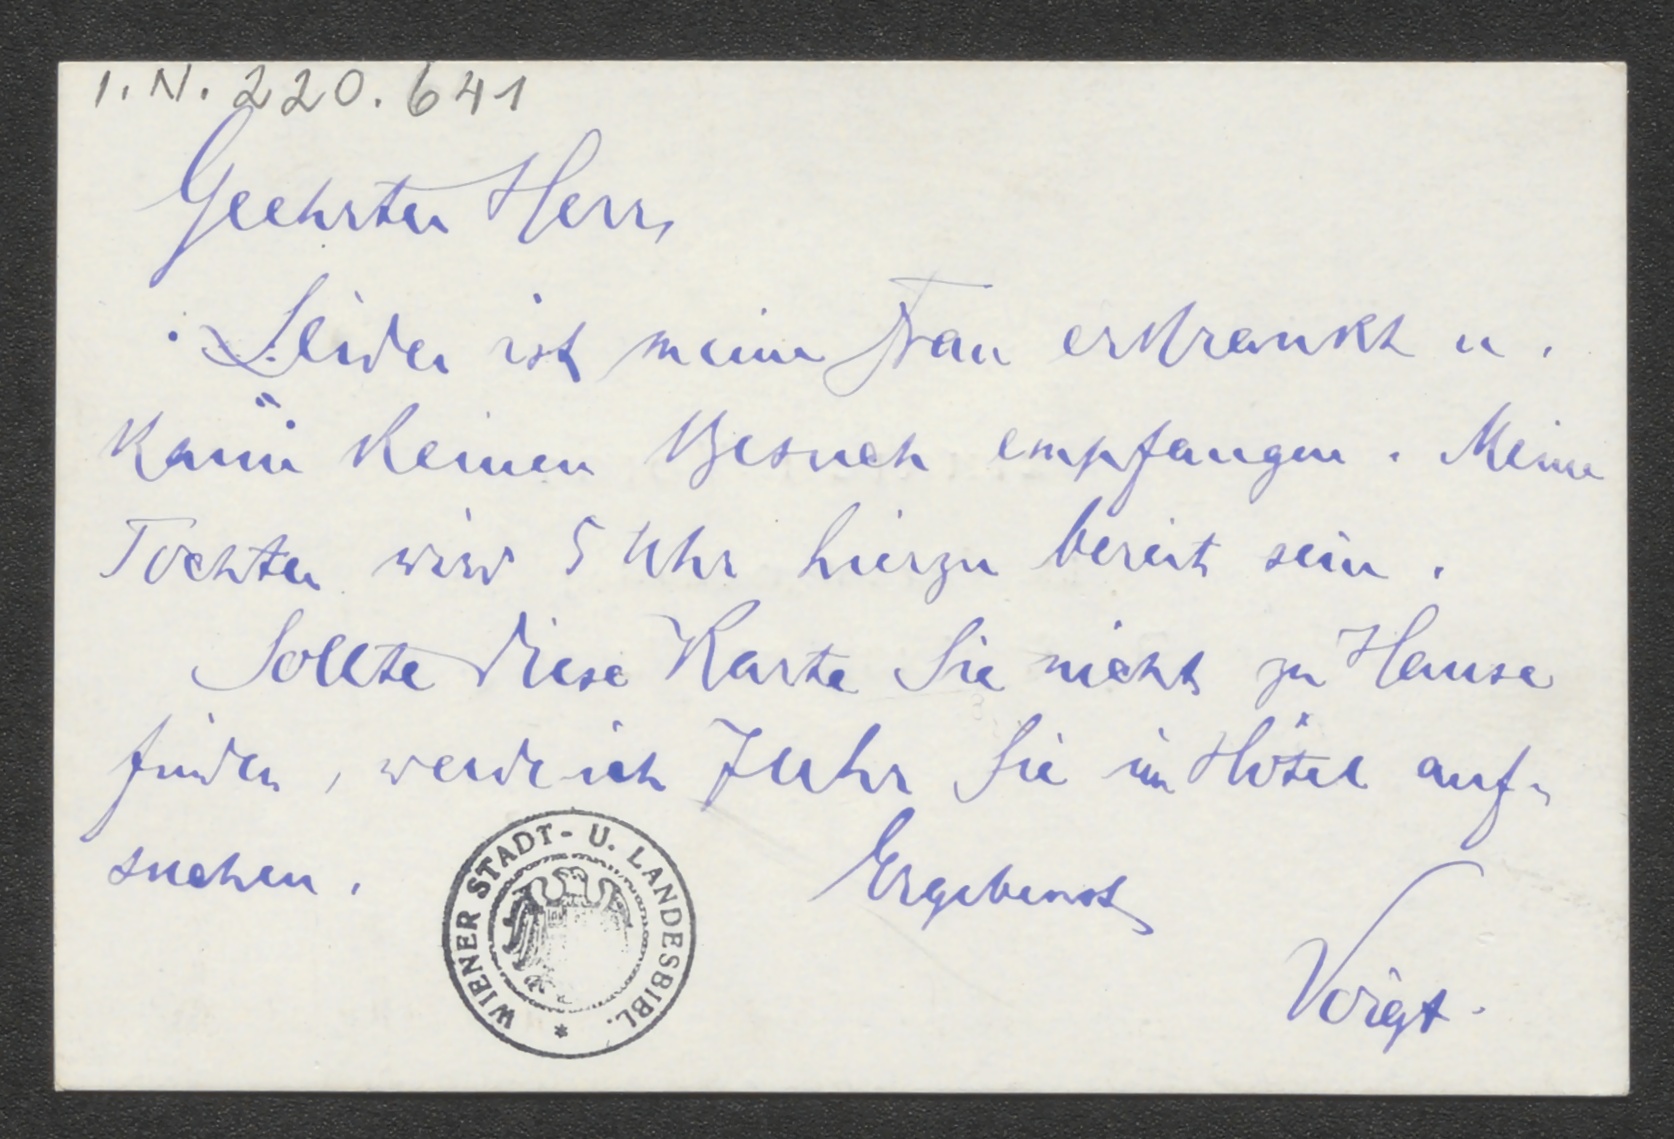 I.N. 220.641
Geehrter Herr,
Leider ist meine Frau erkrankt u.
kann keinen Besuch empfangen. Meine
Tochter wird 5 Uhr hierzu bereit sein.
Sollte diese Karte Sie nicht zu Hause
finden, werde ich 7 Uhr Sie im Hôtel auf-
suchen.
Ergebenst
Voigt.
WIENER STADT- U. LANDESBIBL. *